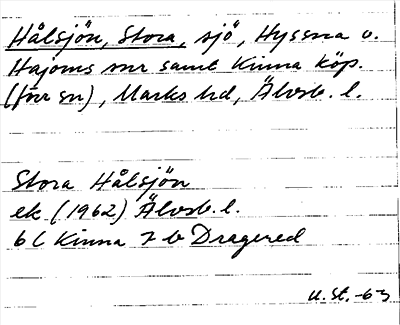 Hålsjön, Stora, sjö, Hyssna o.
Hajoms snr samt Kinna köp.
(förr sn), Marks hd, Älvsb. l.
Stora Hålsjön
ek (1962) Älvsb. l.
6 C Kinna 7 b Dragered
U. St. -63